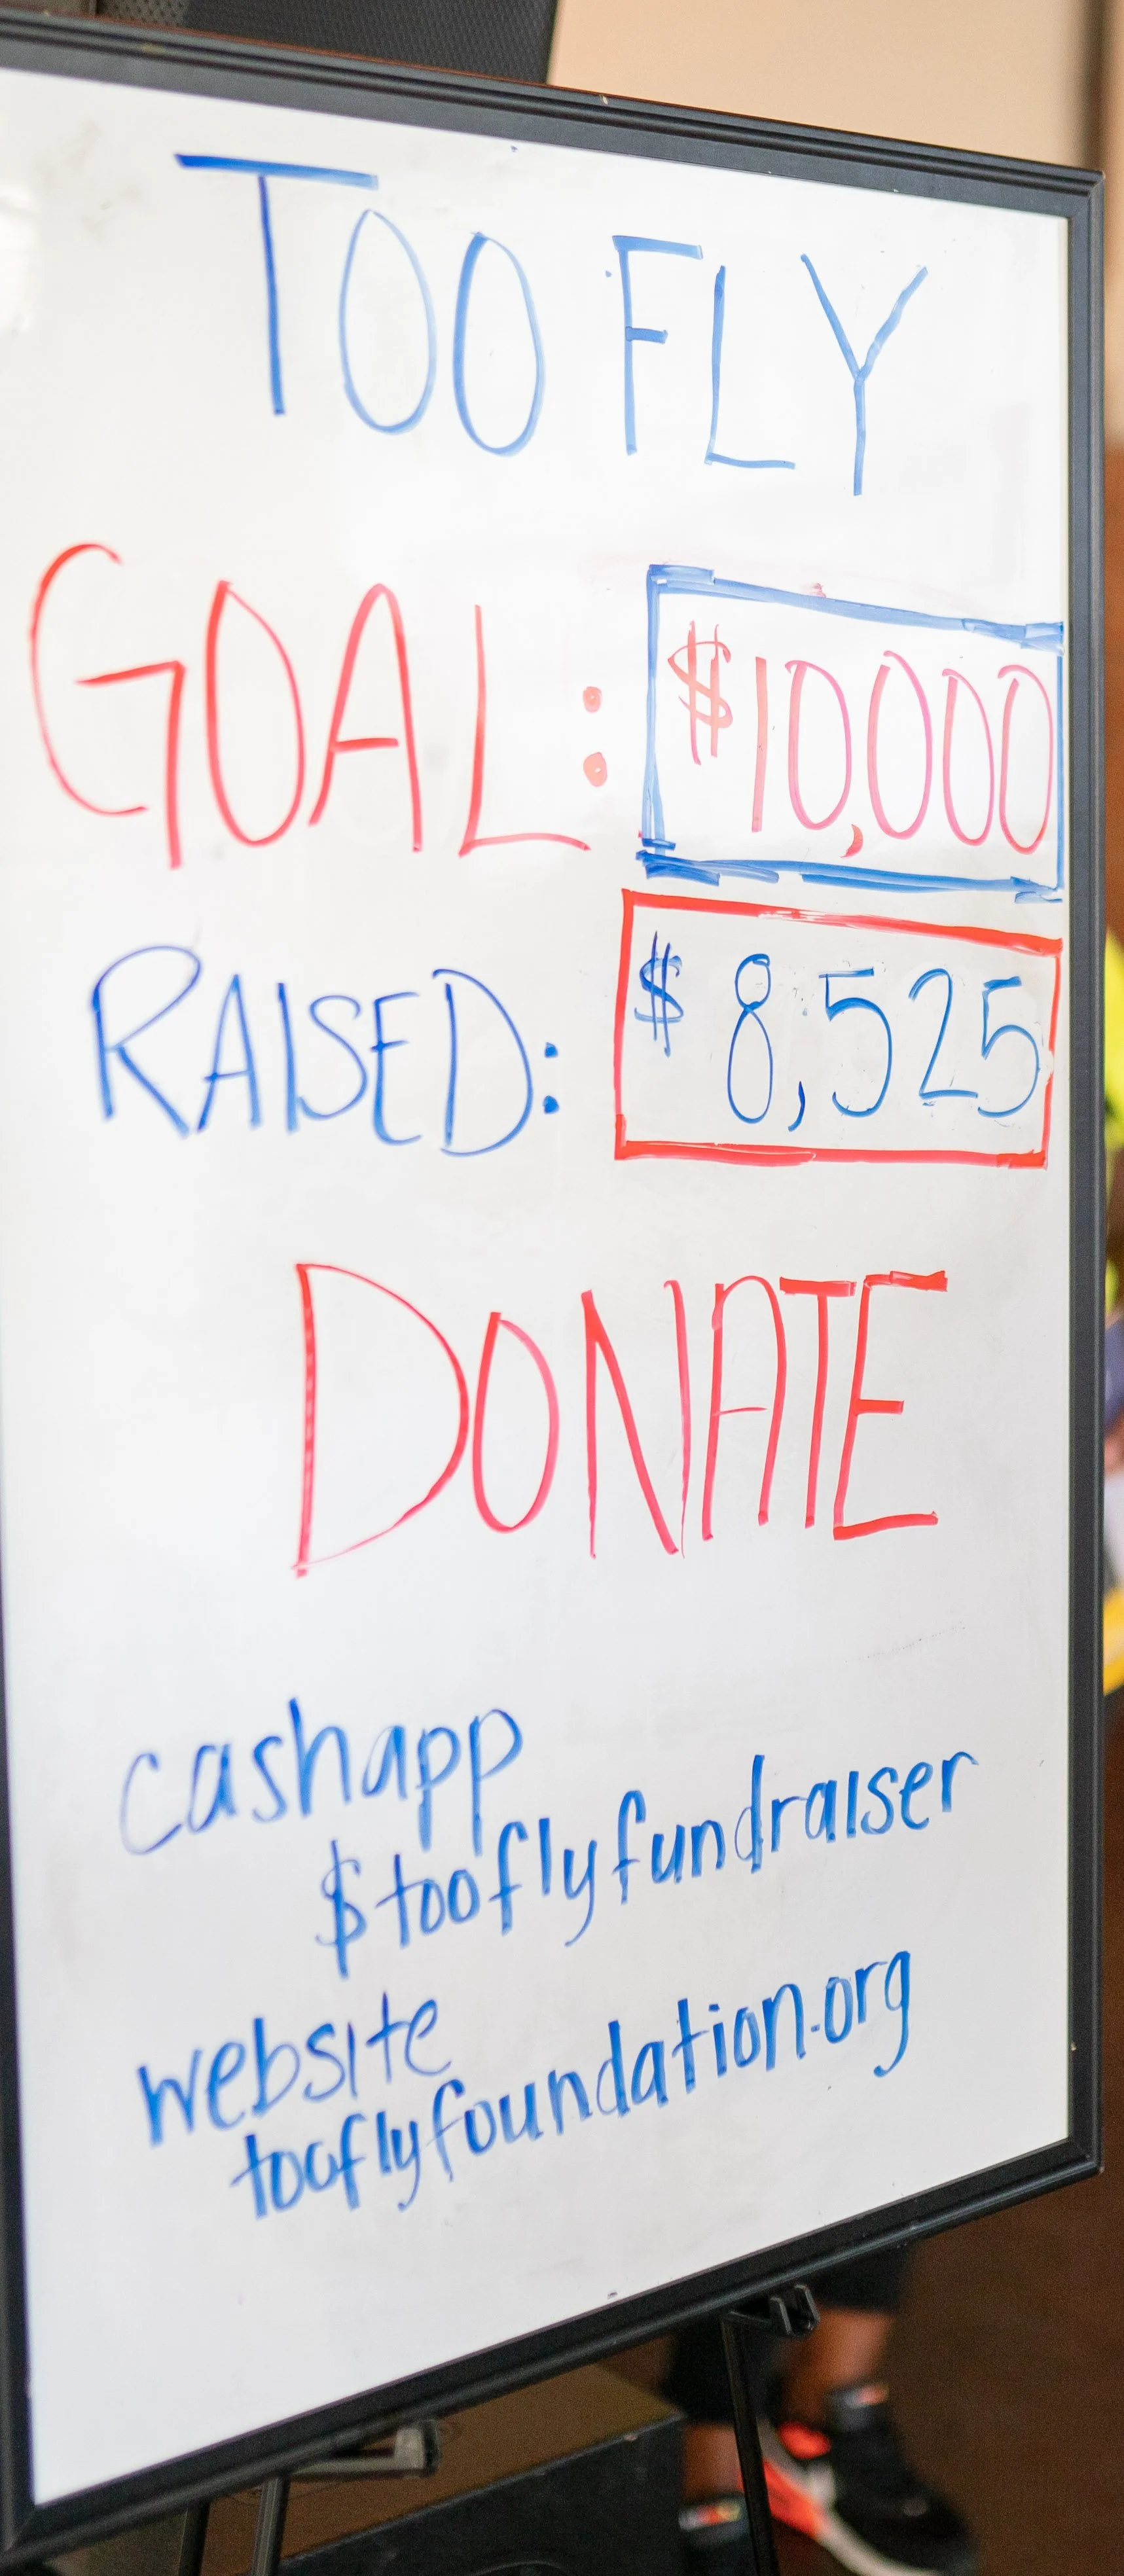 TOO FLY
GOAL: $10,000
RAISED: $ 8,525
DONATE
cashapp
$tooflyfundraiser
website
tooflyfoundation.org